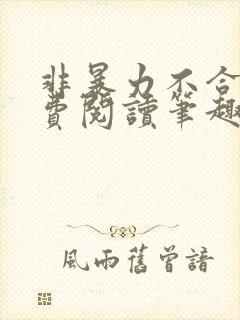 非暴力不合
費閱讀筆趣
風雨舊曾諳